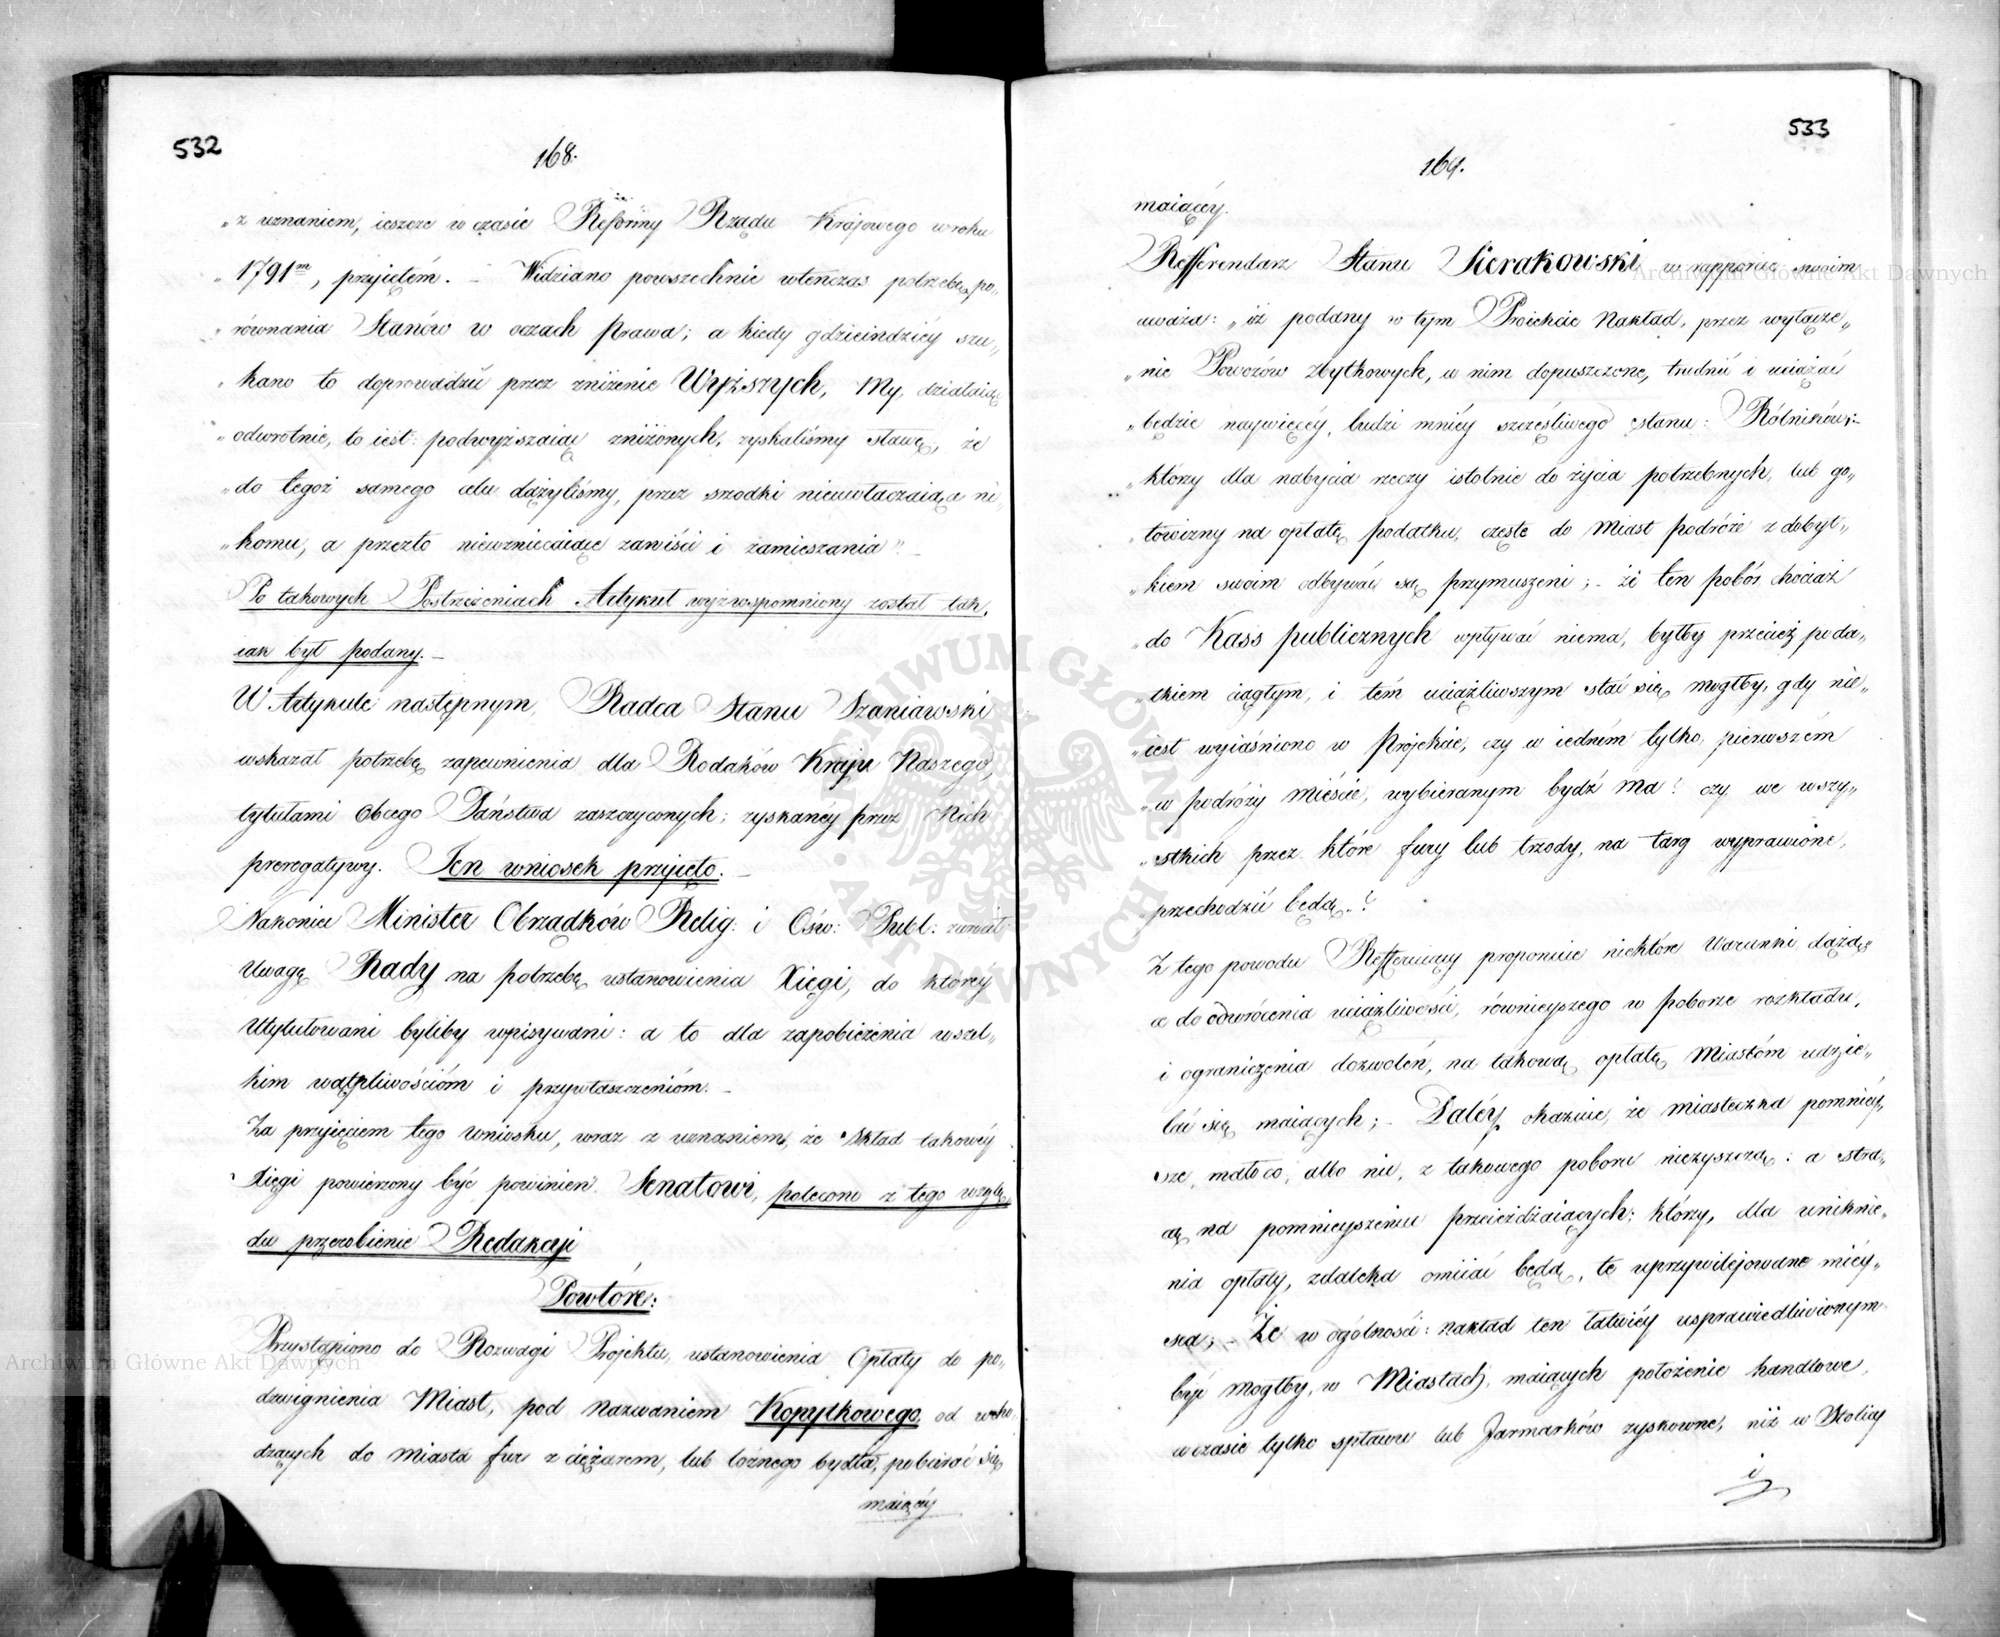 532
168.
„z uznaniem, ieszcze w czasie Reformy Rządu Krajowego w roku
„1791m, przyiętém. – Widziano powszechnie wtenczas potrzebę po„
„równania Stanów w oczach Prawa; a kiedy gdzieindziéy szu„
„kano to doprowadzić przez zniżenie Wyższych, My, działaiąc
„odwrotnie, to iest: podwyższaiąc zniżonych, zyskaliśmy sławę, że
„do tegoż samego celu dążyliśmy, przez srzodki nieuwłaczaiące ni„
„komu, a przezto niewzniecaiące zawiści i zamieszania". –
Po takowych Postrzeżeniach Artykuł wyżwspomniony został tak,
iak był podany. –
W Artykule następnym, Radca Stanu Szaniawski
wskazał potrzebę zapewnienia dla Rodaków Kraju Naszego,
tytułami Obcego Państwa zaszczyconych; zyskanéy przez Nich
prerogatywy. Ten wniosek przyięto. –
Nakoniec Minister Obrządków Relig: i Ośw: Publ: zwrócił
Uwagę Rady na potrzebę ustanowienia Xięgi, do któréy
Utytułowani byliby wpisywani: a to dla zapobieżenia wszel„
kim wątpliwościóm i przywłaszczenióm. –
Za przyięciem tego Wniosku, wraz z uznaniem, że Skład takowéy
Xięgi powierzony być powinien Senatowi, polecono z tego wzglę„
du przerobienie Redakcyi
Powtóre:
Przystąpiono do Rozwagi Projektu, ustanowienia Opłaty do po„
dzwignienia Miast, pod Nazwaniem Kopytkowego, od wcho„
dzących do Miasta fur z ciężarem, lub lóźnego bydła, pobierać się
maiącéy
533
169.
maiącéy.
Refferendarz Stanu Sierakowski w rapporcie swoim
uważa: „iż podany w tym Proiekcie Nakład, przez wyłącze„
„nie Powozów zbytkowych, w nim dopuszczone, trudnić i uciążać
„będzie naywięcéy, ludzi mniéy szczęśliwego stanu: Rólników;–
„którzy dla nabycia rzeczy istotnie do życia potrzebnych, lub go„
„towizny na opłatę podatku, częste do Miast podróże z dobyt„
„kiem swoim odbywać są przymuszeni; – że ten pobór chociaż
„do Kass publicznych wpływać niema, byłby przecież poda„
„tkiem ciągłym, i tém uciążliwszym stać się mógłby, gdy nie„
„iest wyiaśniono w Projekcie, czy w iedném tylko, pierwszém
„w podróży Mieście, wybieranym bydź ma? czy we wszy„
„stkich przez które fury lub trzody, na targ wyprawione,
„przechodzić będą.?
Z tego powodu Refferuiący proponuie niektóre Warunki dążą„
ce do odwrócenia uciążliwości, równieyszego w poborze rozkładu,
i ograniczenia dozwoleń, na takową opłatę Miastóm udzie„
lać się maiących; – Daléy okazuie, że Miasteczka pomniéy„
sze, mało co, albo nic, z takowego poboru niezyszczą: a stra„
cą na pomnieyszeniu przeieżdżaiących; którzy, dla uniknie„
nia opłaty, zdaleka omiiać będą, te uprzywilejowane miéy„
sca; – Że w ogólności: nakład ten łatwiéy usprawiedliwionym
być mógłby, w Miastach, maiących położenie handlowe,
w czasie tylko spławu lub Jarmarków zyskowne, niż w Stolicy
i
Archiwum Główne Akt Dawnych
Archiwum Główne Akt Dawnych
ARCHIWUM GŁÓWNE AKT DAWNYCH